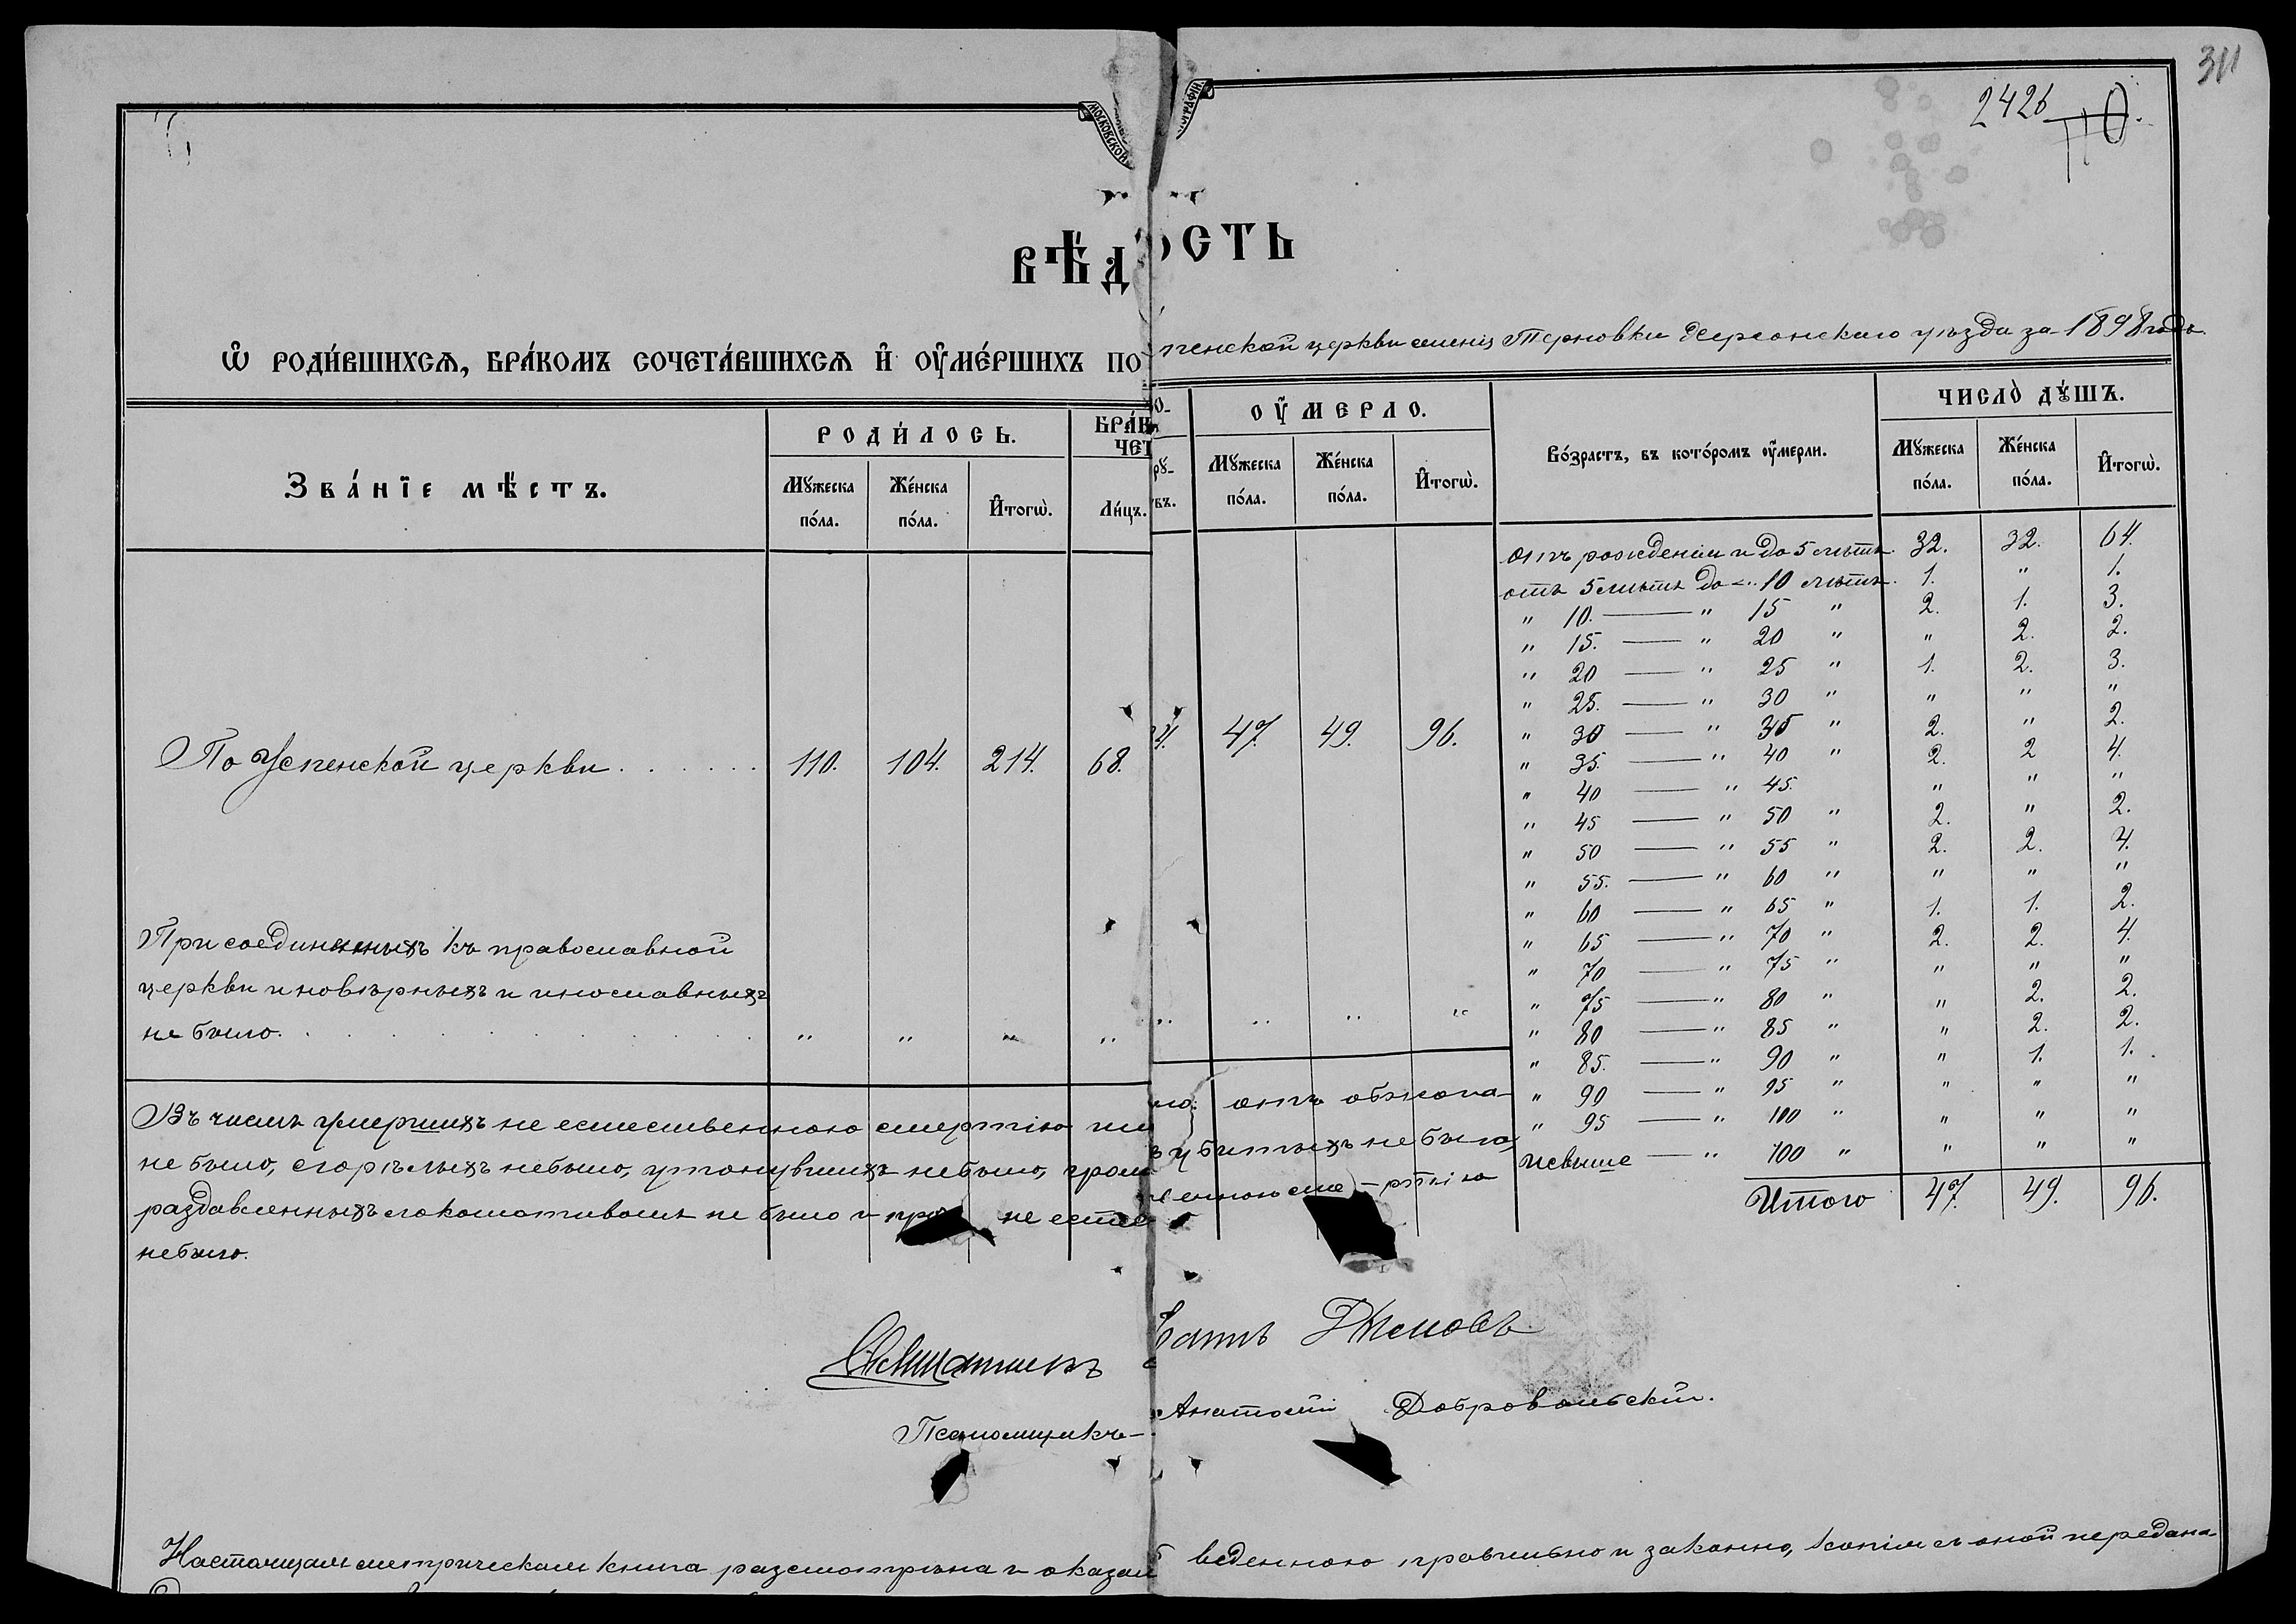 311
2426
МОСКОВСКОЙ
ВѢДО
ОСТЬ
Ѡ РОДИ́ВШИХСѦ, БРА́КОМЪ СОЧЕТА́ВШИХСѦ И҆ ОУ҆МЕ́РШИХЪ ПО
пенской церкви селенія Терновки Херсонскаго уѣзда за 1898 годъ.
Зва́нїе мѣ́стъ.
РОДИ́ЛОСЬ.
Мꙋ́жеска по́ла.
Же́нска по́ла.
И҆тогѡ̀.
Ли́цъ.
ОУ҆́МЕРЛО.
Мꙋ́жеска по́ла.
Же́нска по́ла.
И҆тогѡ̀.
Во́зрастъ, въ кото́ромъ оу҆́мерли.
ЧИСЛО̀ ДꙊ́ШЪ.
Мꙋ́жеска по́ла.
Же́нска по́ла.
И҆тогѡ̀.
По Успенской церкви . . . . . . 110. 104. 214. 68.
4. 47. 49. 96.
Присоединенныхъ къ православной
церкви иновѣрныхъ и инославныхъ
не было. . . . . . . . . . " " " "
" " " "
отъ рожденія и до 5 лѣтъ. 32. 32. 64.
отъ 5 лѣтъ до " 10 лѣтъ. 1. " 1.
" 10. — " 15 " 2. 1. 3.
" 15. — " 20 " " 2. 2.
" 20 — " 25 " 1. 2. 3.
" 25. — " 30 " " " "
" 30 — " 35 " 2. " 2.
" 35. — " 40 " 2. 2 4.
" 40 — " 45. " " "
" 45 — " 50 " 2. " 2.
" 50 — " 55 " 2. 2. 4.
" 55. — " 60 " " " "
" 60 — " 65 " 1. 1. 2.
" 65 — " 70 " 2. 2. 4.
" 70 — " 75 " " " "
" 75 — " 80 " " 2. 2.
" 80 — " 85 " " 2. 2.
" 85. — " 90 " " 1. 1.
" 90 — " 95 " " " "
" 95 — " 100 " " " "
и свыше — " 100 " " " "
Итого 47. 49. 96.
Въ числѣ умершихъ не естественною смертію
отъ обжога
не было, сгорѣлыхъ небыло, утонувшихъ небыло, гром
убитыхъ не было,
раздавленныхъ локомотивомъ не было и не естес
венною сме-ртію
небыло.
Священникъ
Псаломщикъ —
Анатолій Добровольскій.
Настоящая метрическая книга разсмотрѣна и оказал
веденною правильно и законно, копія съ оной передана